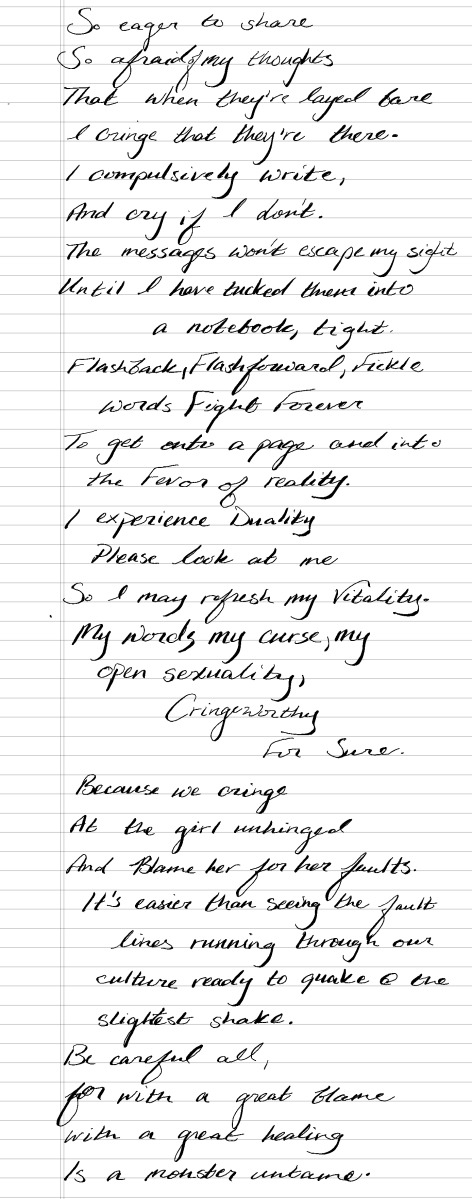 So eager to share
So afraid of my thoughts
That when they're layed bare
I cringe that they're there.
I compulsively write,
And cry if I don't.
The messages won't escape my sight
Until I have tucked them into
a notebook, tight.
Flashback, Flashforward, Fickle
words Fight Forever
To get onto a page and into
the Fevor of reality.
I experience Duality
Please look at me
So I may refresh my Vitality.
My words, my curse, my
open sexuality,
Cringeworthy
For Sure.
Because we cringe
At the girl unhinged
And Blame her for her faults.
It's easier than seeing the fault
lines running through our
culture ready to quake @ the
slightest shake.
Be careful all,
for with a great blame
with a great healing
Is a monster untame.